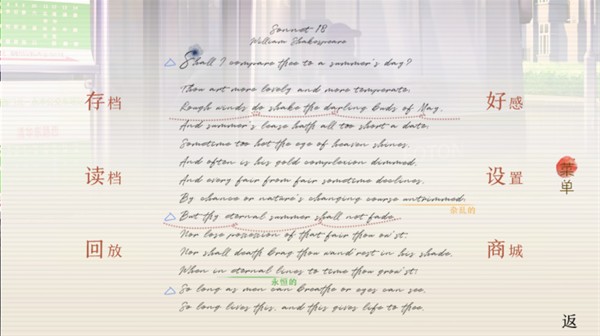 Sonnet 18
William Shakespeare
Shall I compare thee to a summer's day?
Thou art more lovely and more temperate.
Rough winds do shake the darling buds of May.
And summer's lease hath all too short a date.
Sometime too hot the eye of heaven shines.
And often is his gold complexion dimmed.
And every fair from fair sometime declines.
By chance or nature's changing course untrimmed.
杂乱的
But thy eternal summer shall not fade.
Nor lose possession of that fair thou ow'st:
Nor shall death brag thou wand'rest in his shade.
When in eternal lines to time thou grow'st:
永恒的
So long as men can breathe or eyes can see.
So long lives this, and this gives life to thee.
存档
读档
回放
好感
设置
商城
菜单
返